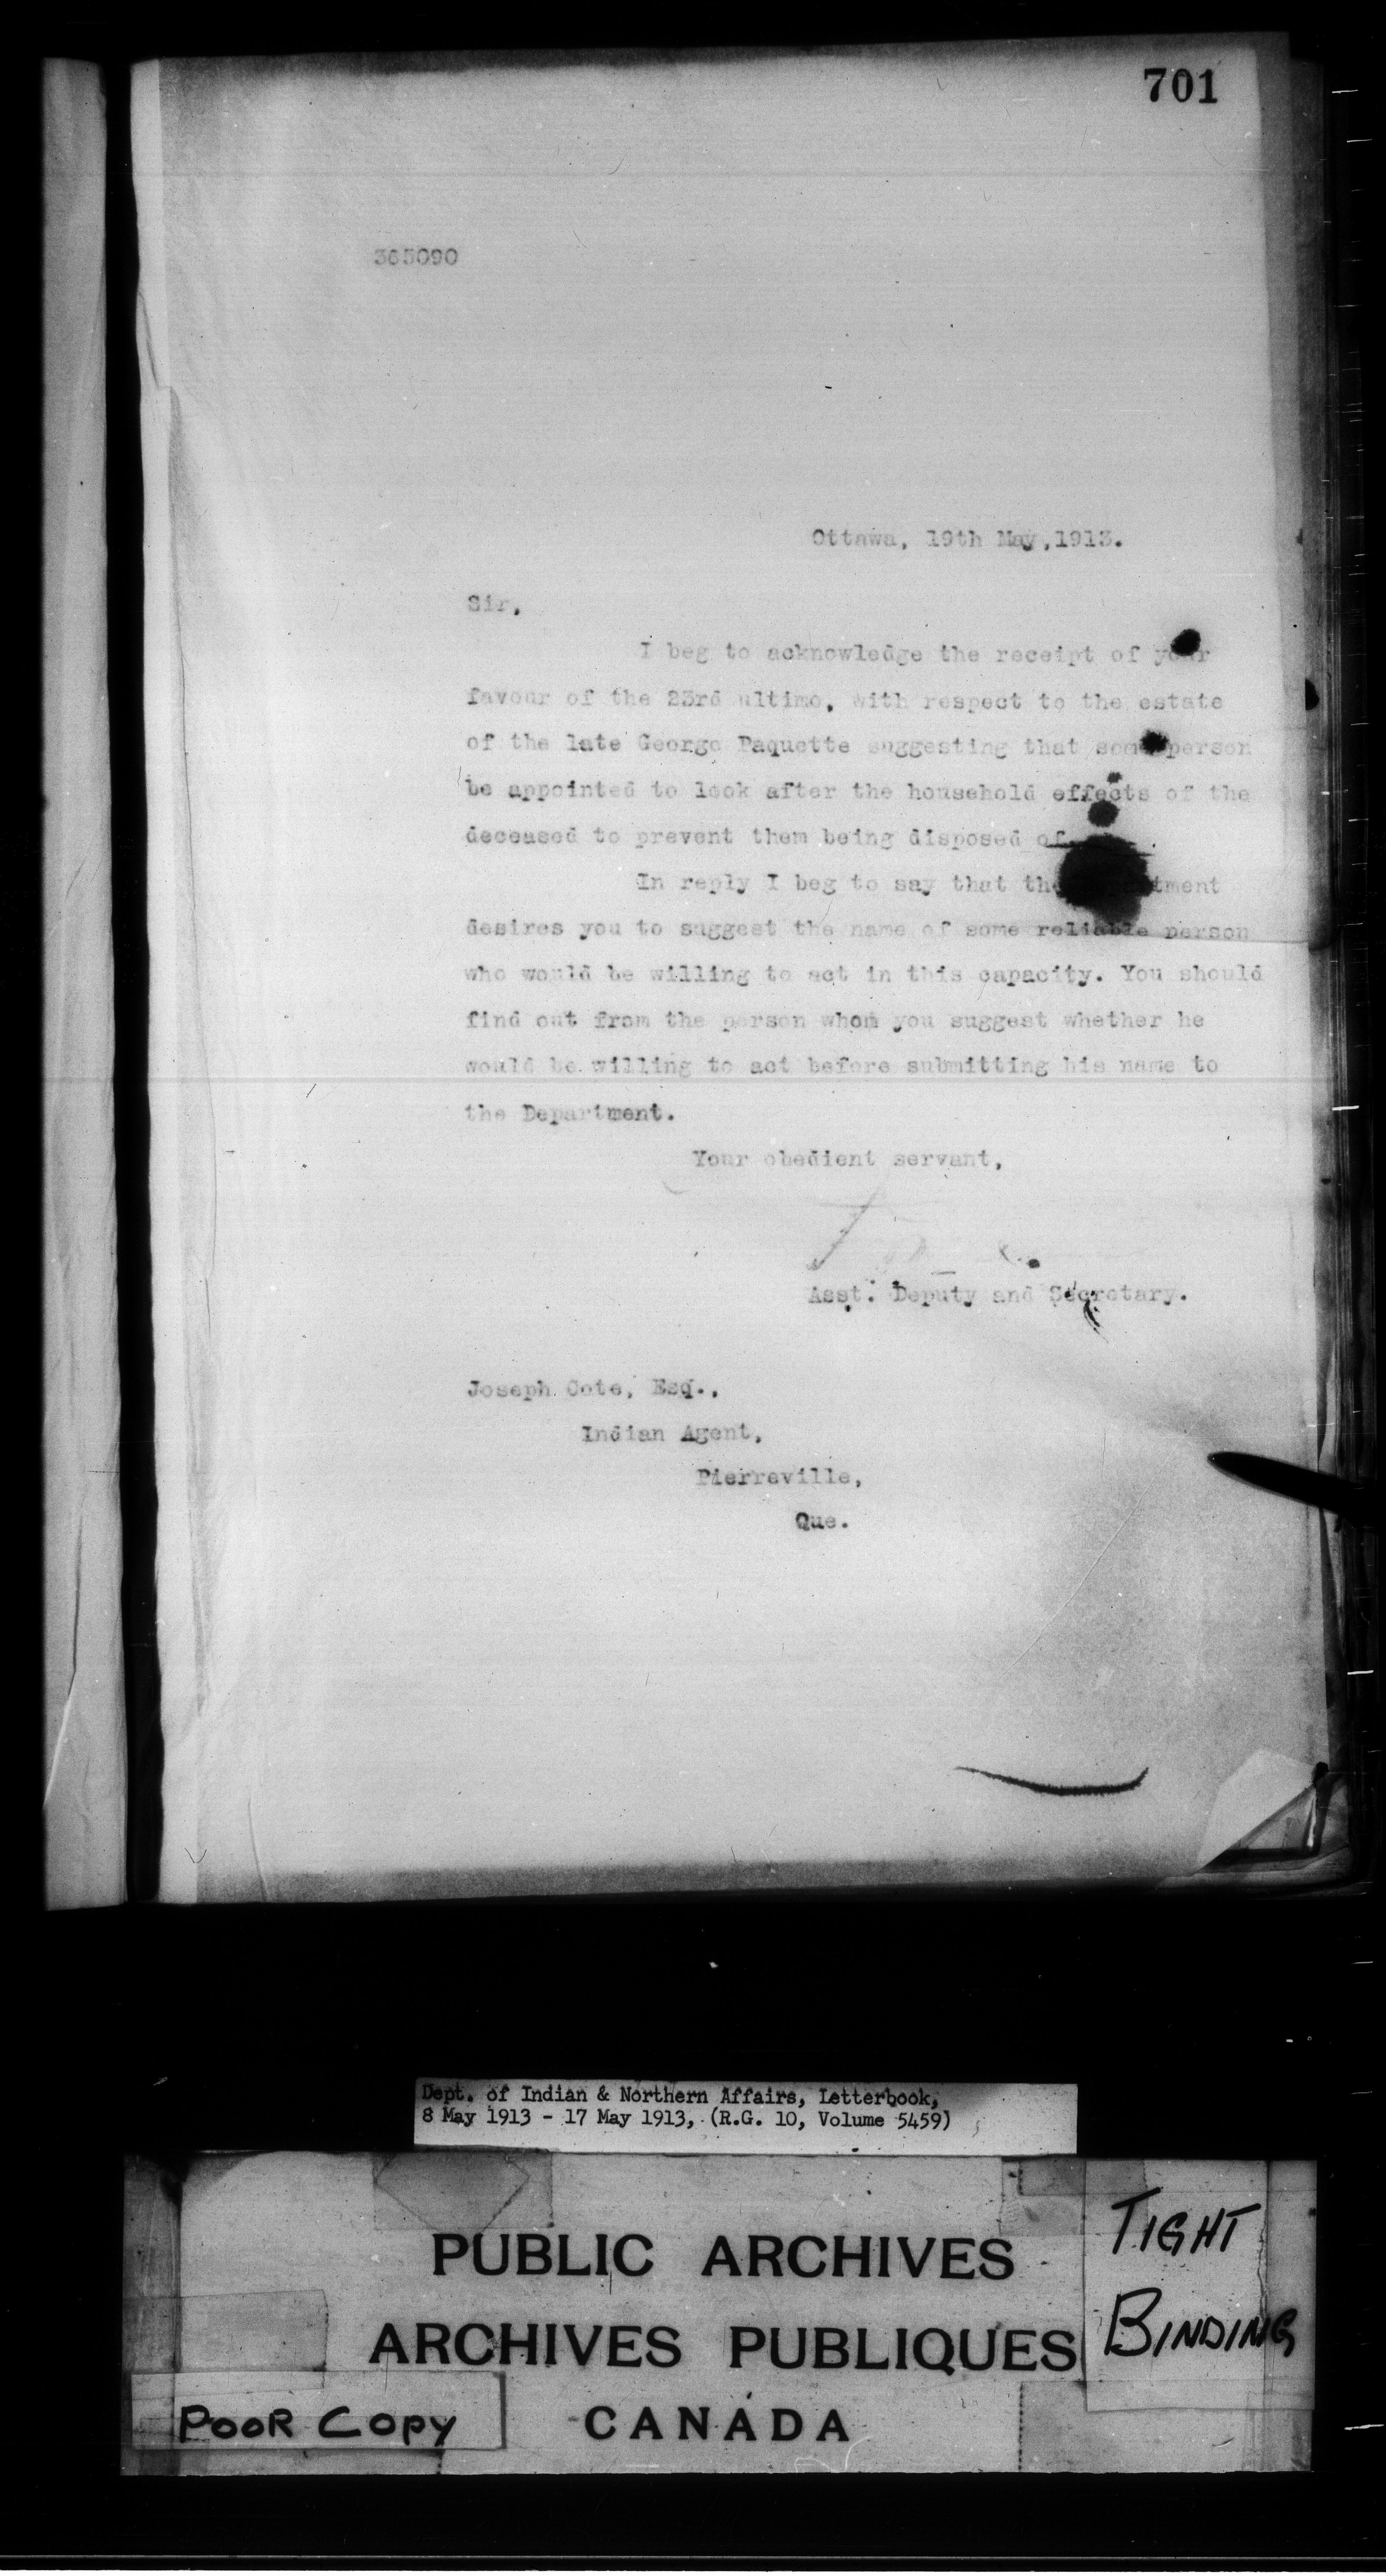 701
365090
Ottawa, 19th May, 1913.
Sir,
I beg to acknowledge the receipt of your
favour of the 23rd ultimo, with respect to the estate
of the late George Paquette suggesting that some person
be appointed to look after the household effects of the
deceased to prevent them being disposed of.
In reply I beg to say that the Department
desires you to suggest the name of some reliable person
who would be willing to act in this capacity. You should
find out from the person whom you suggest whether he
would be willing to act before submitting his name to
the Department.
Your obedient servant,
Asst. Deputy and Secretary.
Joseph Cote, Esq.,
Indian Agent,
Pierreville,
Que.
Dept. of Indian & Northern Affairs, Letterbook,
8 May 1913 - 17 May 1913, (R.G. 10, Volume 5459)
PUBLIC ARCHIVES
ARCHIVES PUBLIQUES
CANADA
TIGHT
BINDING
POOR COPY